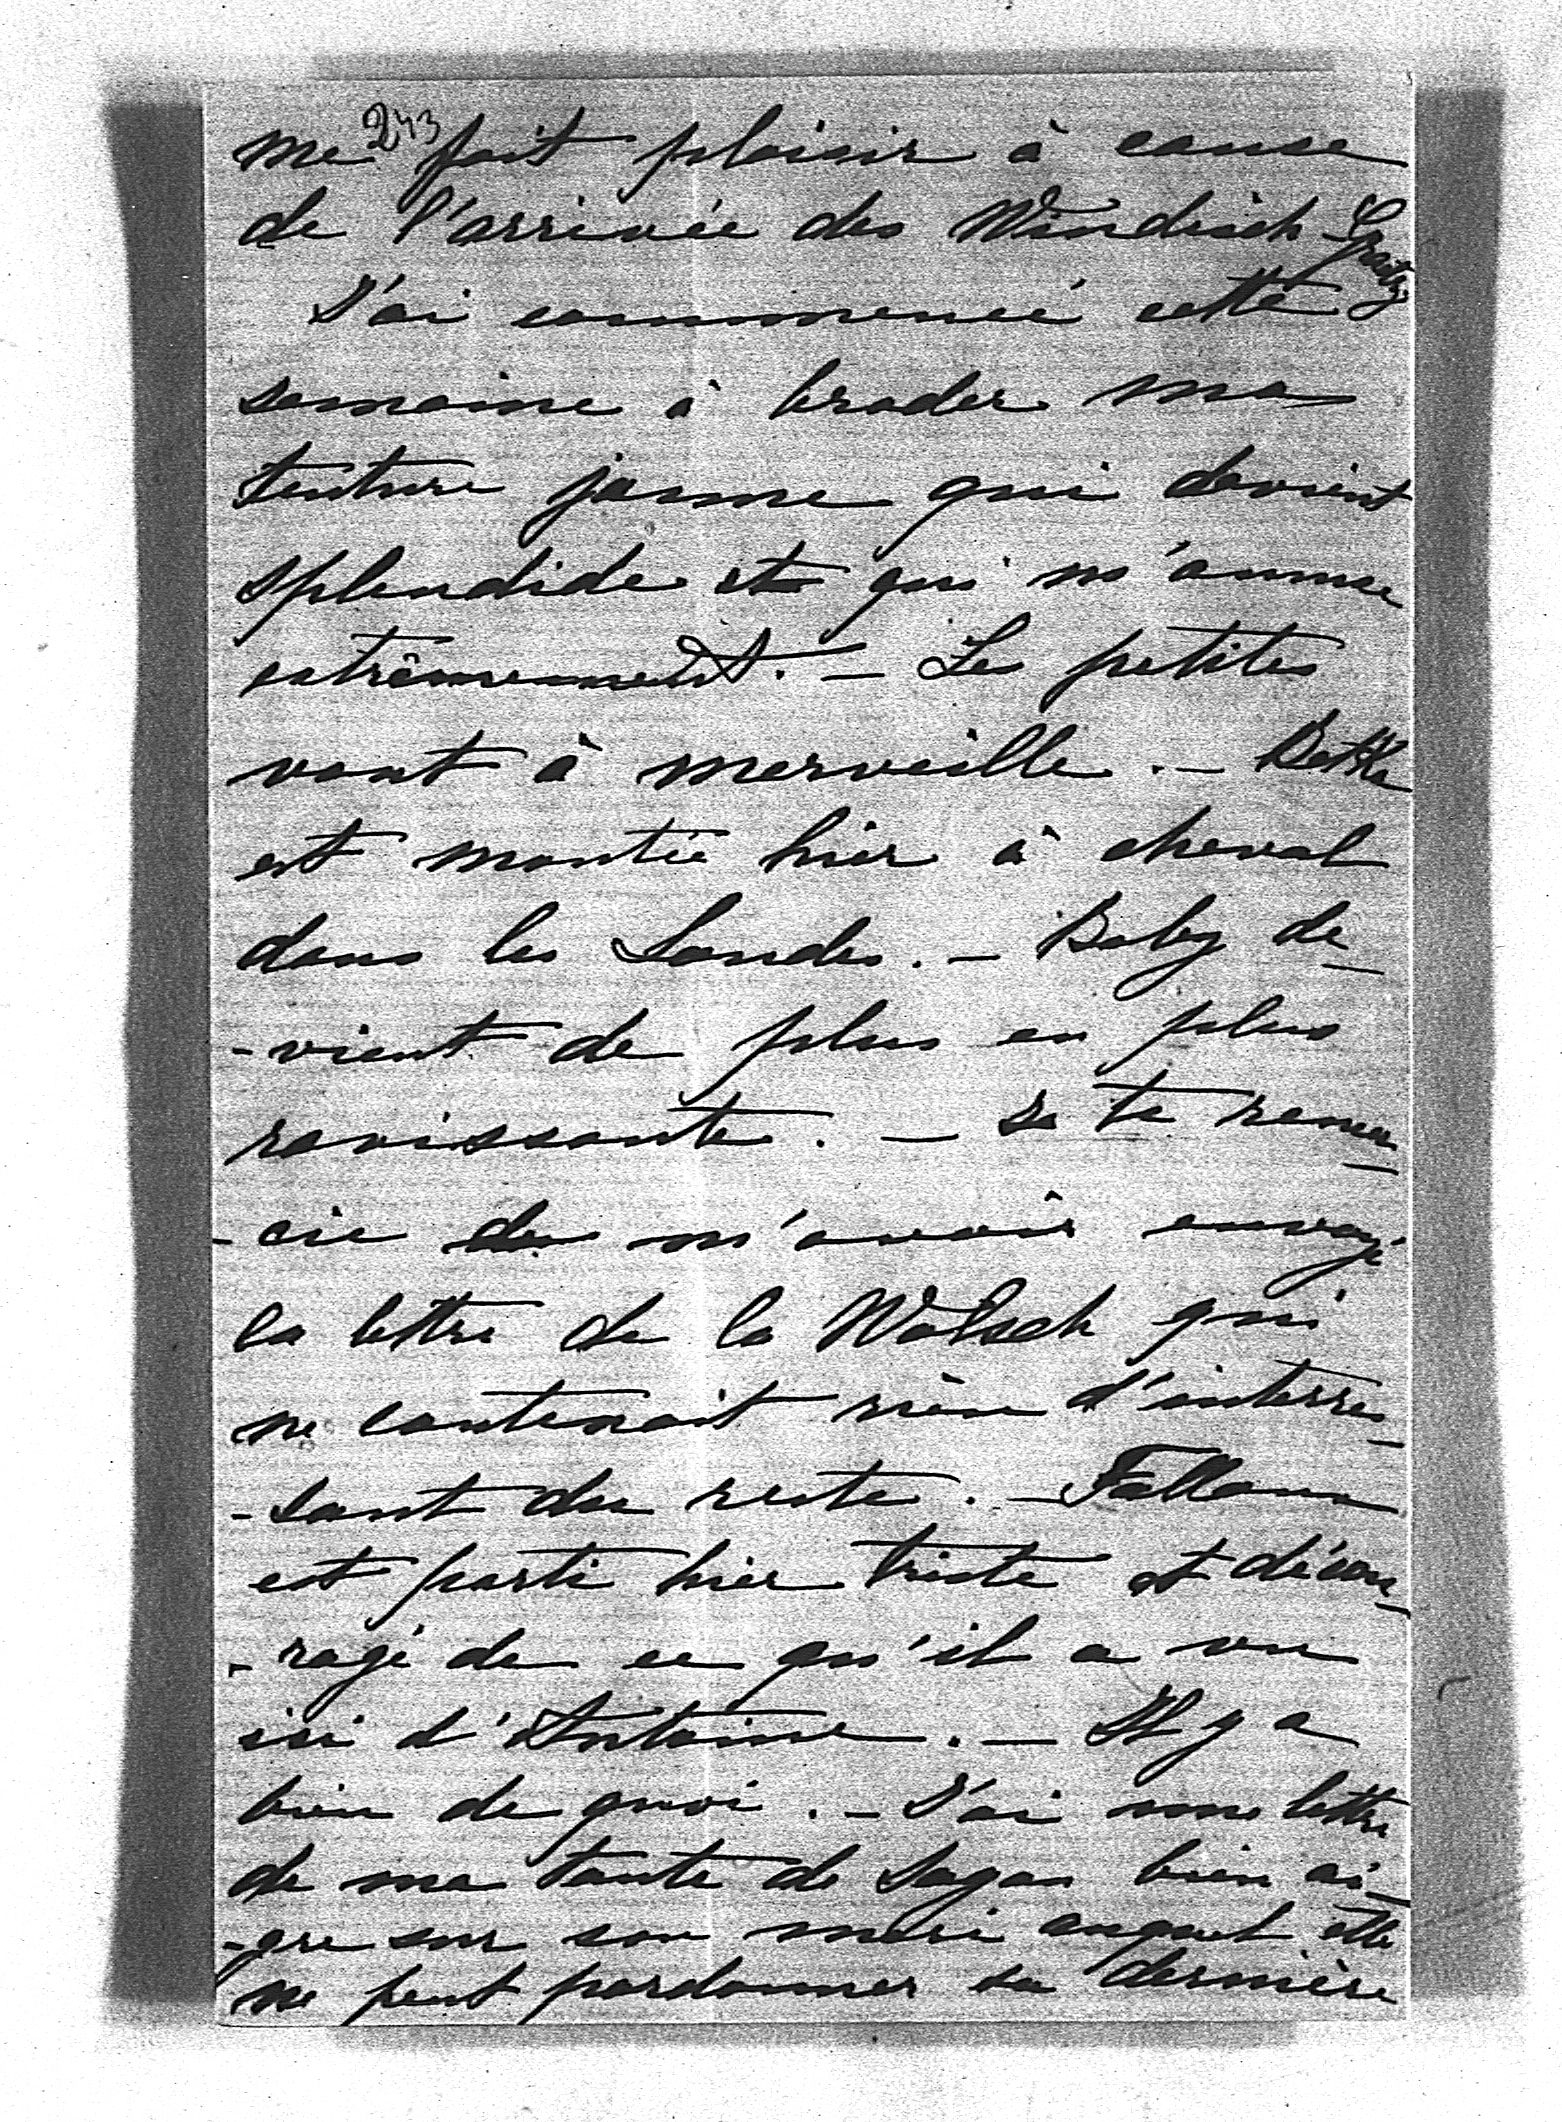 243
me fait plaisir à cause
de l'arrivée des Windisch-Graetz
J'ai commencé cette
semaine à broder ma
tenture jaune qui devient
splendide et qui m'amuse
extrêmement. – Les petites
vont à merveille. – Bethka
est montée hier à cheval
dans les Landes. – Baby de-
-vient de plus en plus
ravissante. – Je te remer-
-cie de m'avoir envoyé
la lettre de la Walsch qui
ne contenait rien d'interres-
-sant du reste. – Falloux
est parti hier triste et décou-
-ragé de ce qu'il a vu
ici d'Antoine. – Il y a
bien de quoi. – J'ai une lettre
de ma tante de Sagan bien ai-
-gre sur son mari auquel elle
ne peut pardonner sa dernière